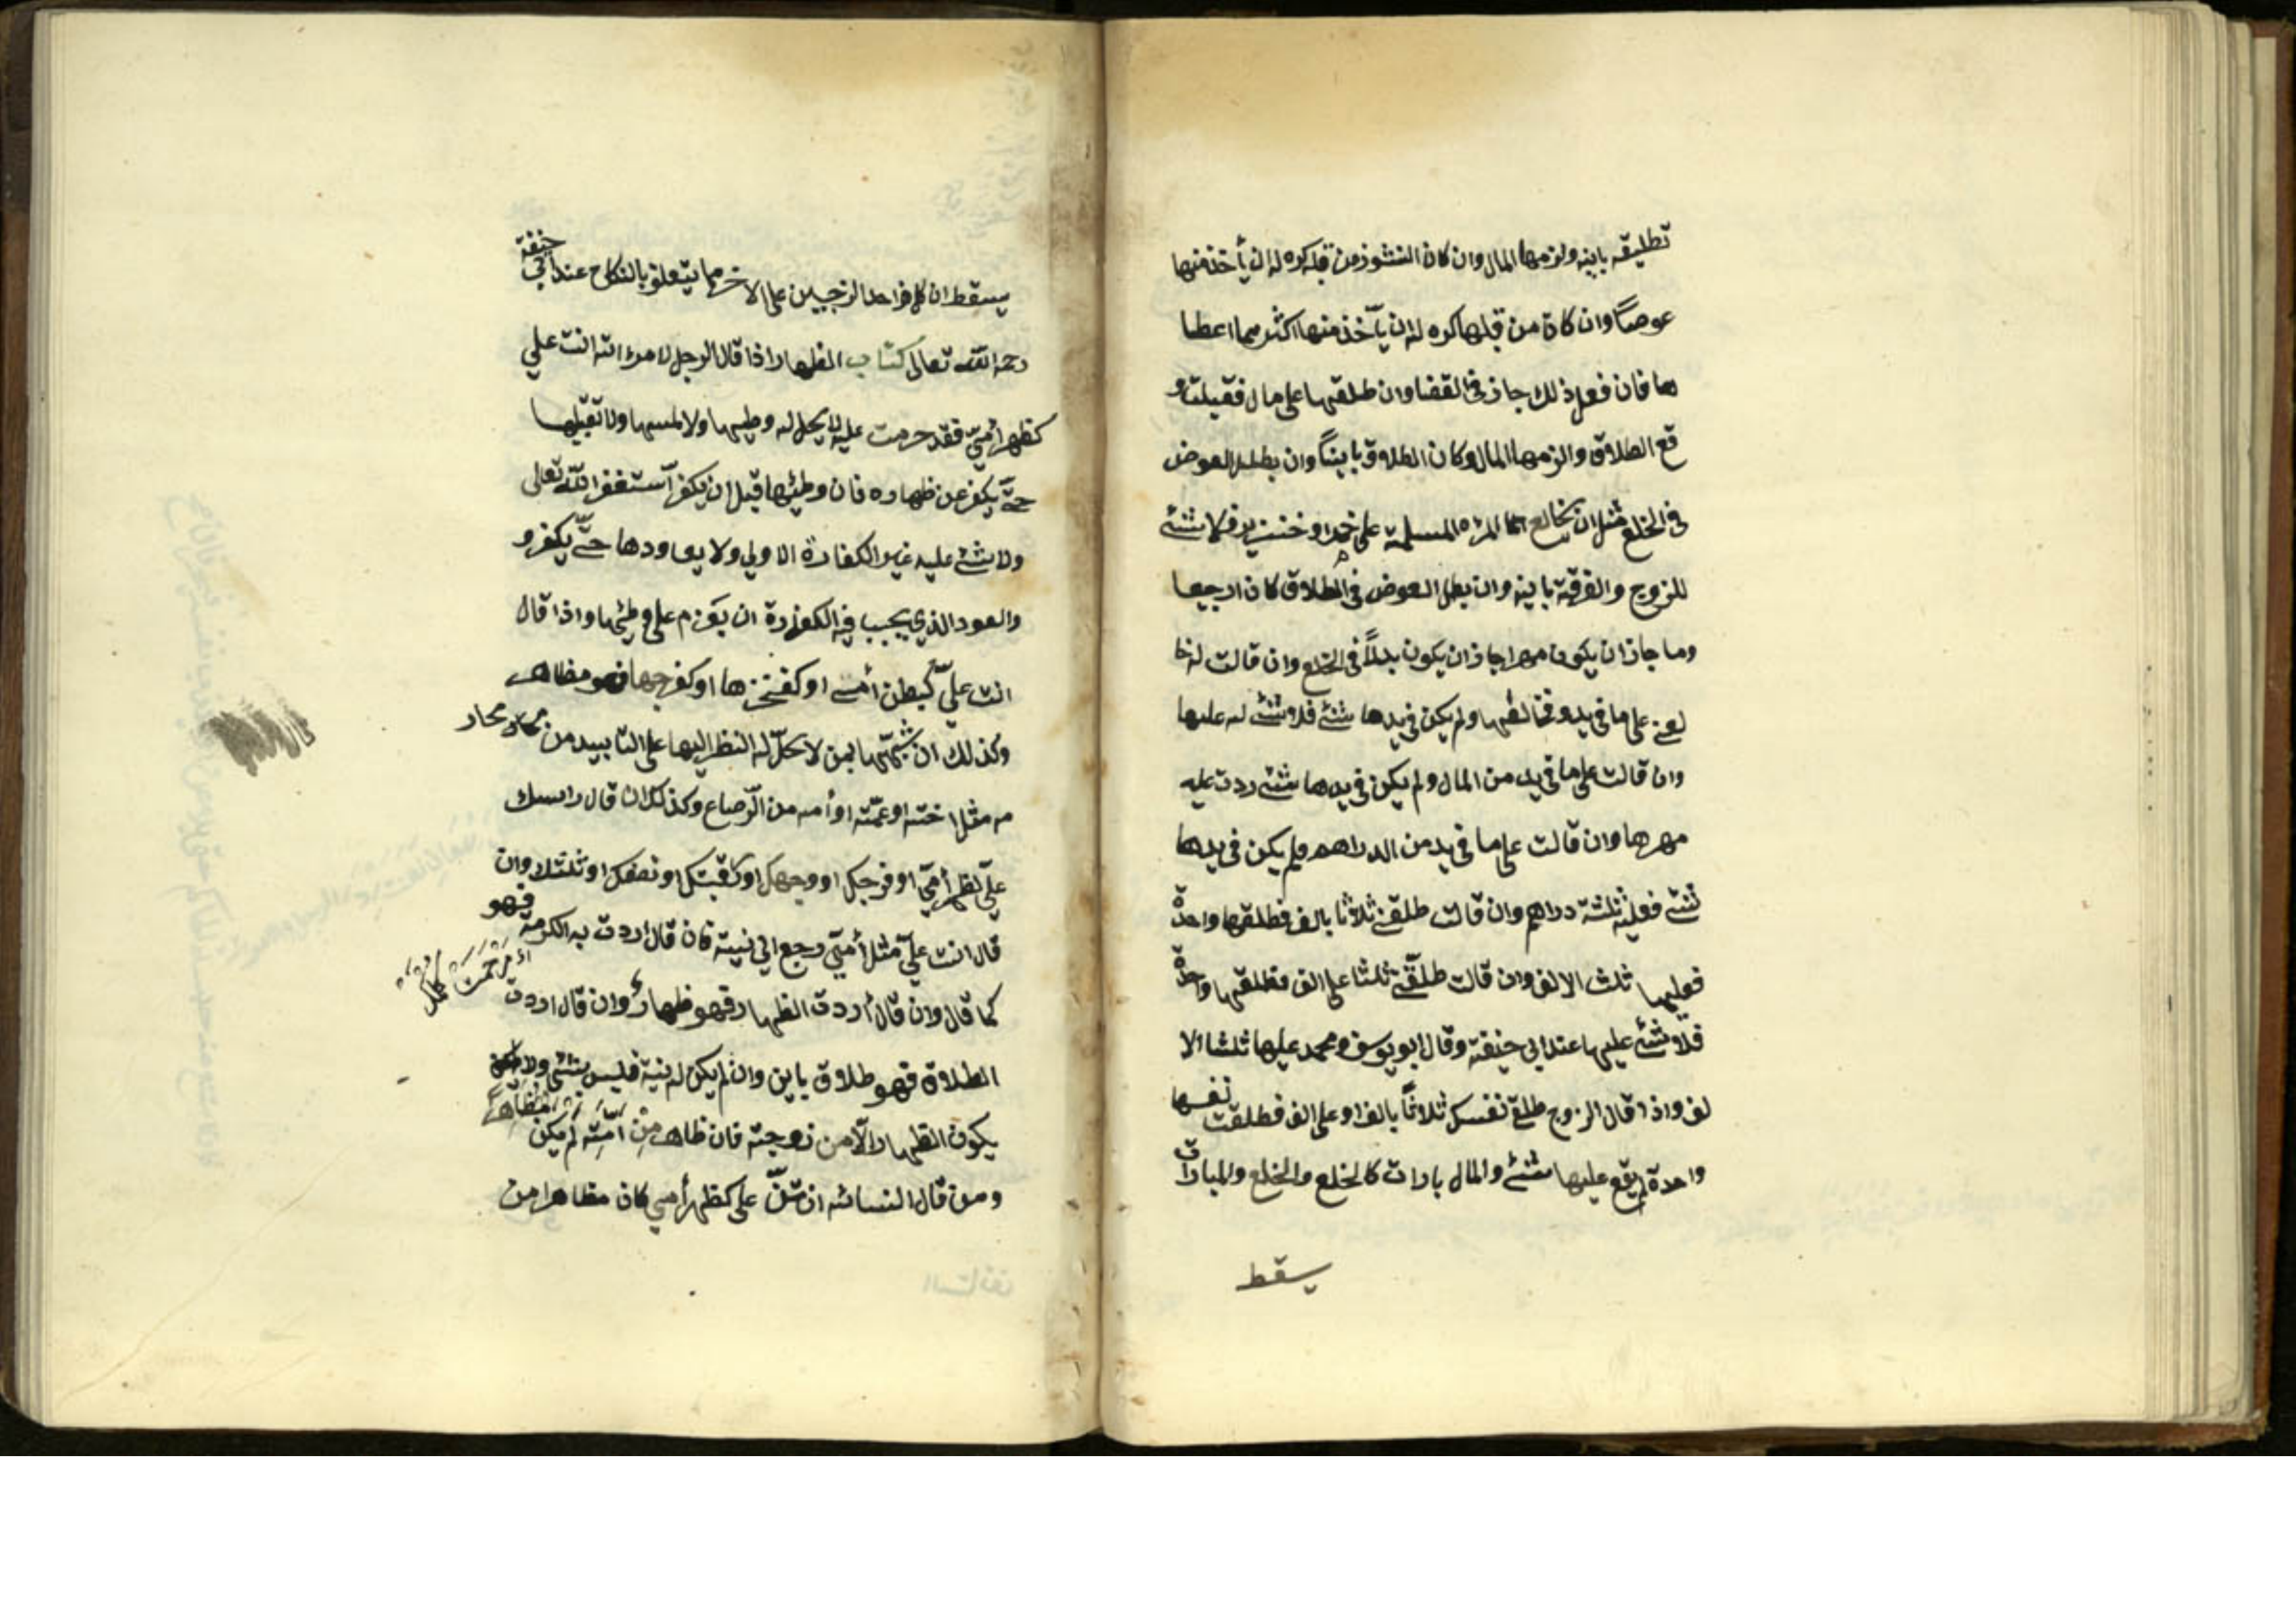 تطليقه باينه ولزمها المال وان كان النشوز من قبله كره له ان يأخذ منها
عوضاً وان كان من قبلها كره له ان يأخذ منها اكثر مما اعطا
ها فان فعل ذلك جاز في القضا وان طلقها على مال فقبلت و
قع الطلاق والزمها المال وكان الطلاق بايناً وان بطل العوض
في الخلع مثل ان يخالع المرٔه المسلمة على خمر او خنزير فلا شئ
للزوج والفرقة باينه وان بطل العوض في الطلاق كان رجيعا
وما جاز ان يكون مهرا جاز ان يكون بدلاً في الخلع وان قالت له خا
لعني على ما في يدي فخالعها ولم يكن في يدها شئ فلا شئ له عليها
وان قالت على ما في يد من المال ولم يكن في يدها شئ ردت عليه
مهرها وان قالت على ما في يد من الدراهم ولم يكن في يدها
شئ فعليه ثلثة دراهم وان قالت طلقني ثلاثا بالف فطلقها واحدة
فعليها ثلث الالف وان قالت طلقني ثلثا على الف فطلقها واحدة
فلا شئ عليها عند ابي حنيفة وقال ابو يوسف ومحمد عليها ثلث الا
لف واذا قال الزوج طلقي نفسك ثلاثاً بالف او على الف فطلقت نفسها
واحدة لم يقع عليها شئ والمال بارات كالخلع والخلع والمبارات
يسقط
يسقطان كل واحد الزوجين على الاخر مما يتعلق بالنكاح عند ابي حنيفة
رحمه الله تعالى كتاب الظهار اذا قال الرجل لامرءاته انت علي
كظهر أمي فقد حرمت عليه لا يحل له وطيها ولا لمسها ولا تقبيلها
حتى يكفر عن ظهاره فان وطئها قبل ان يكفر استغفر الله تعالى
ولا شئ عليه غير الكفارة الاولي ولا يعاودها حتى يكفر و
والعود الذي يجب فيه الكفارة ان يعزم على وطئها واذا قال
انت عليّ كبطن أمي او كفخذها او كفرجها فهو مظاهر
وكذلك ان شبهها بمن لا يحل له النظر اليها على التأبيد من محار
مه مثل اخته او عمّته او أمه من الرضاع وكذلك ان قال راسك
عليّ كظهر أمي او فرجك او وجهك او رقبتك او نصفك او ثلثك وان
قال انت عليّ مثل أمي رجع الي نيته فان قال اردت به الكرمة فهو
كما قال وان قال أردت الظهار فهو ظهارٌ وان قال اردت
الطلاق فهو طلاق باين وان لم يكن له نية فليس بشئ ولا
يكون الظهار الّا من زوجته فان ظاهر من امته لم يكن مظاهراً
ومن قال لنسائه انتنّ على كظهر أمي كان مظاهرا من